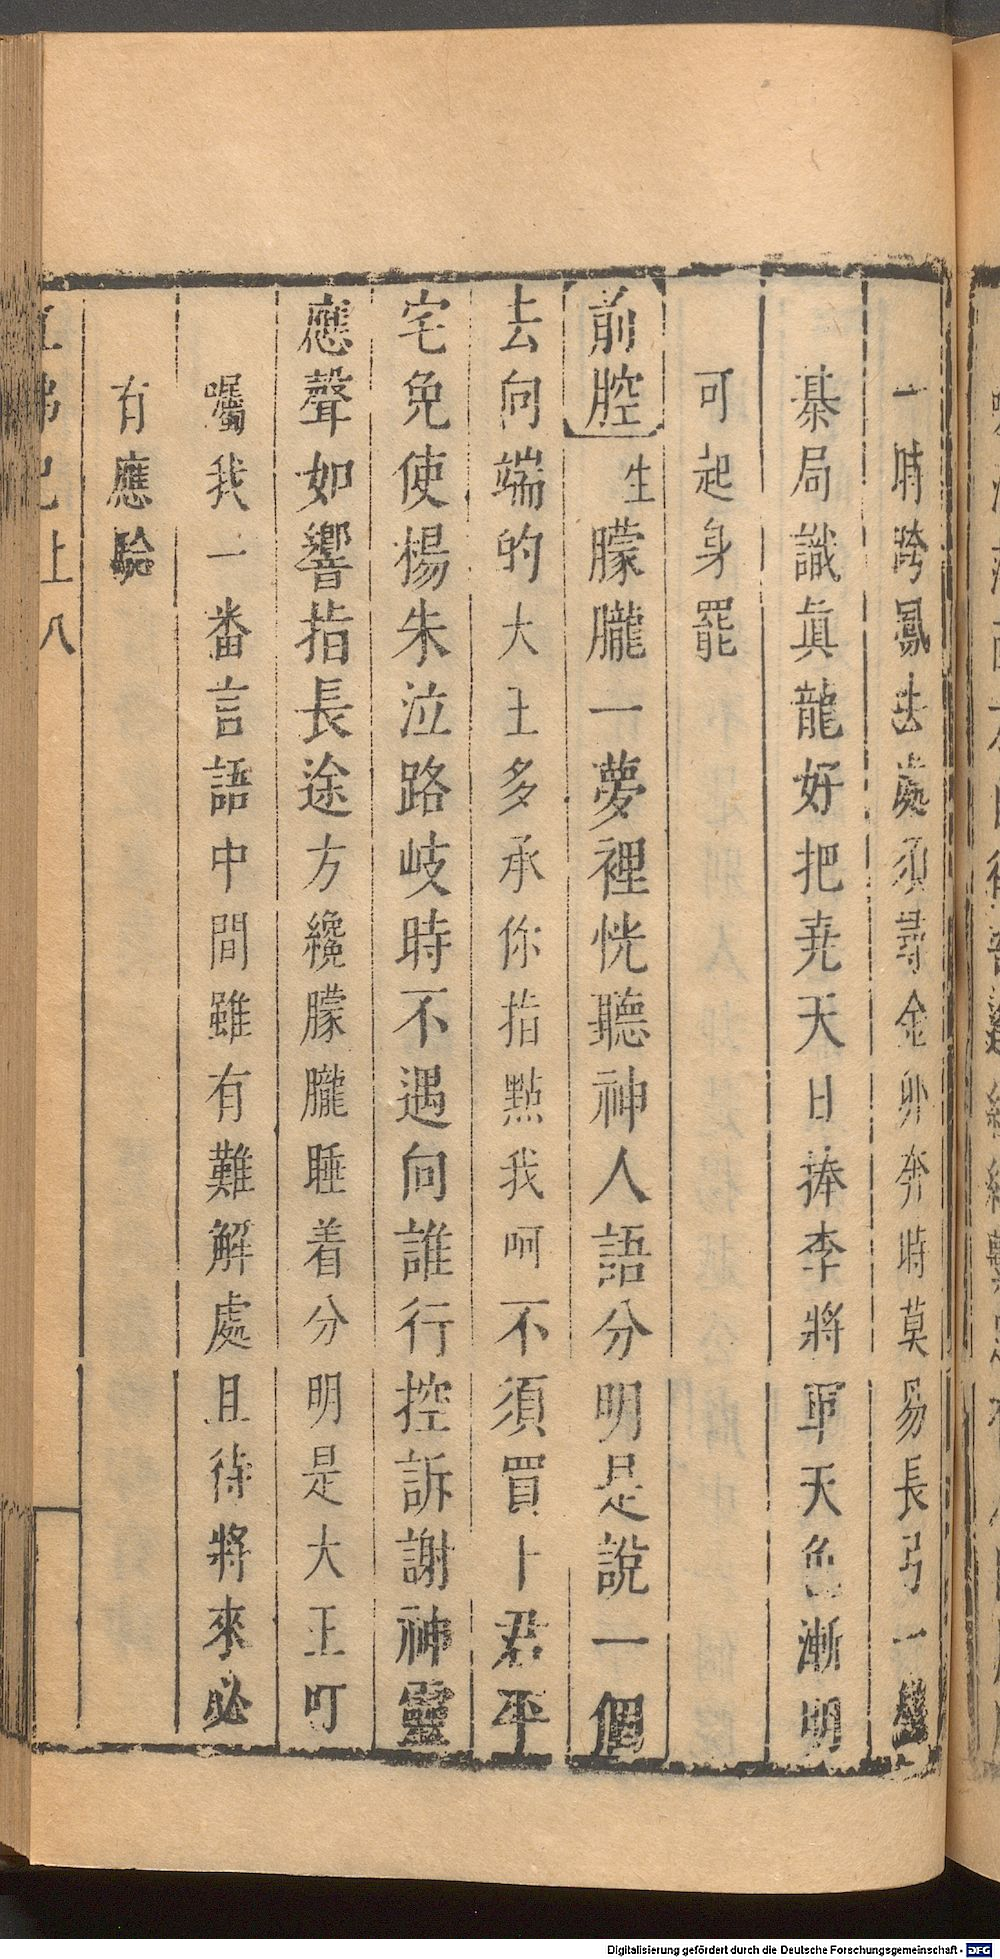 一時跨鳳去處須尋金卯奔時莫易長弓一
棊局識眞龍好把尭天日捧李將軍天色漸明
可起身罷
前腔 生 朦朧一夢裡恍聽神人語分明是說一個
去向端的大王多承你指點我呵不須買卜君平
宅免使楊朱泣路岐時不遇向誰行控訴謝神靈
應聲如響指長途方纔朦朧睡着分明是大王叮
囑我一番言語中間雖有難解處且待將來必
有應驗
紅拂記上 八
Digitalisierung gefördert durch die Deutsche Forschungsgemeinschaft - DFG